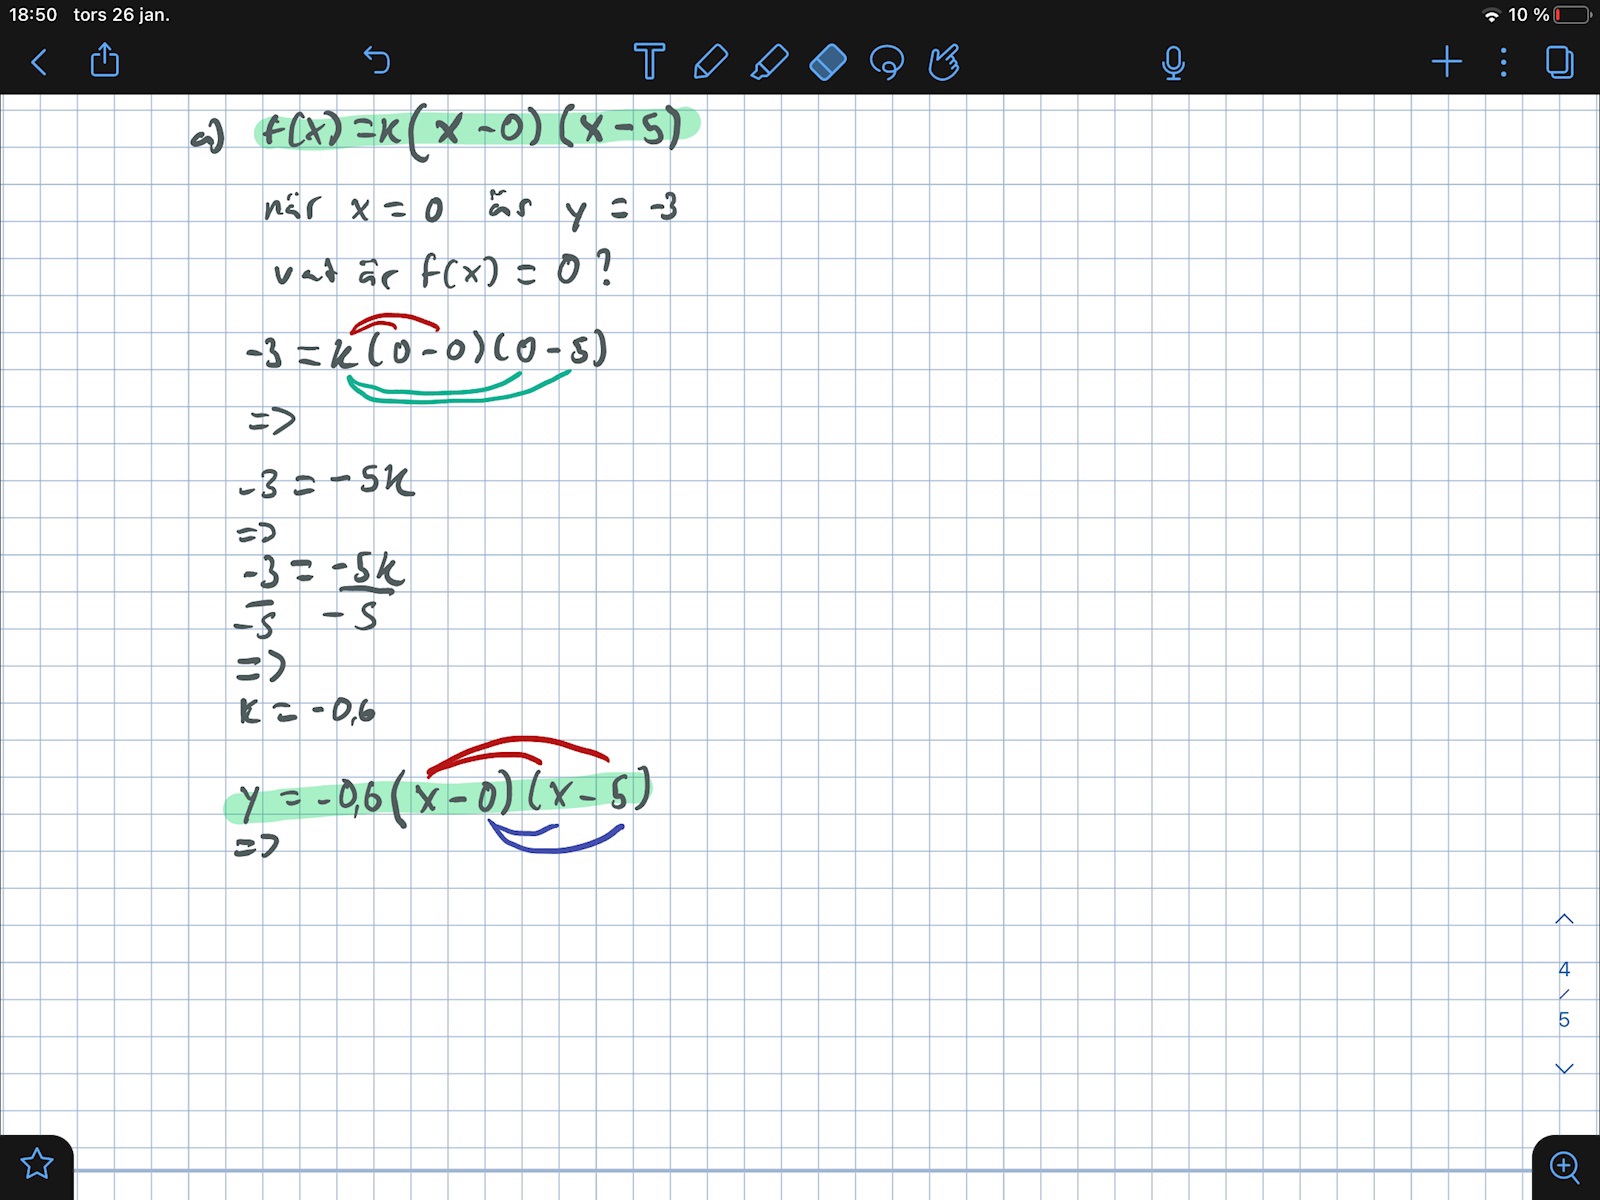 18:50 tors 26 jan. 10 %
a) f(x)=k(x-0)(x-5)
när x=0 är y=-3
vat är f(x)=0?
-3=k(0-0)(0-5)
=>
-3=-5k
=>
-3=-5k
-5 -5
=>
k=-0,6
y=-0,6(x-0)(x-5)
=>
4
/
5